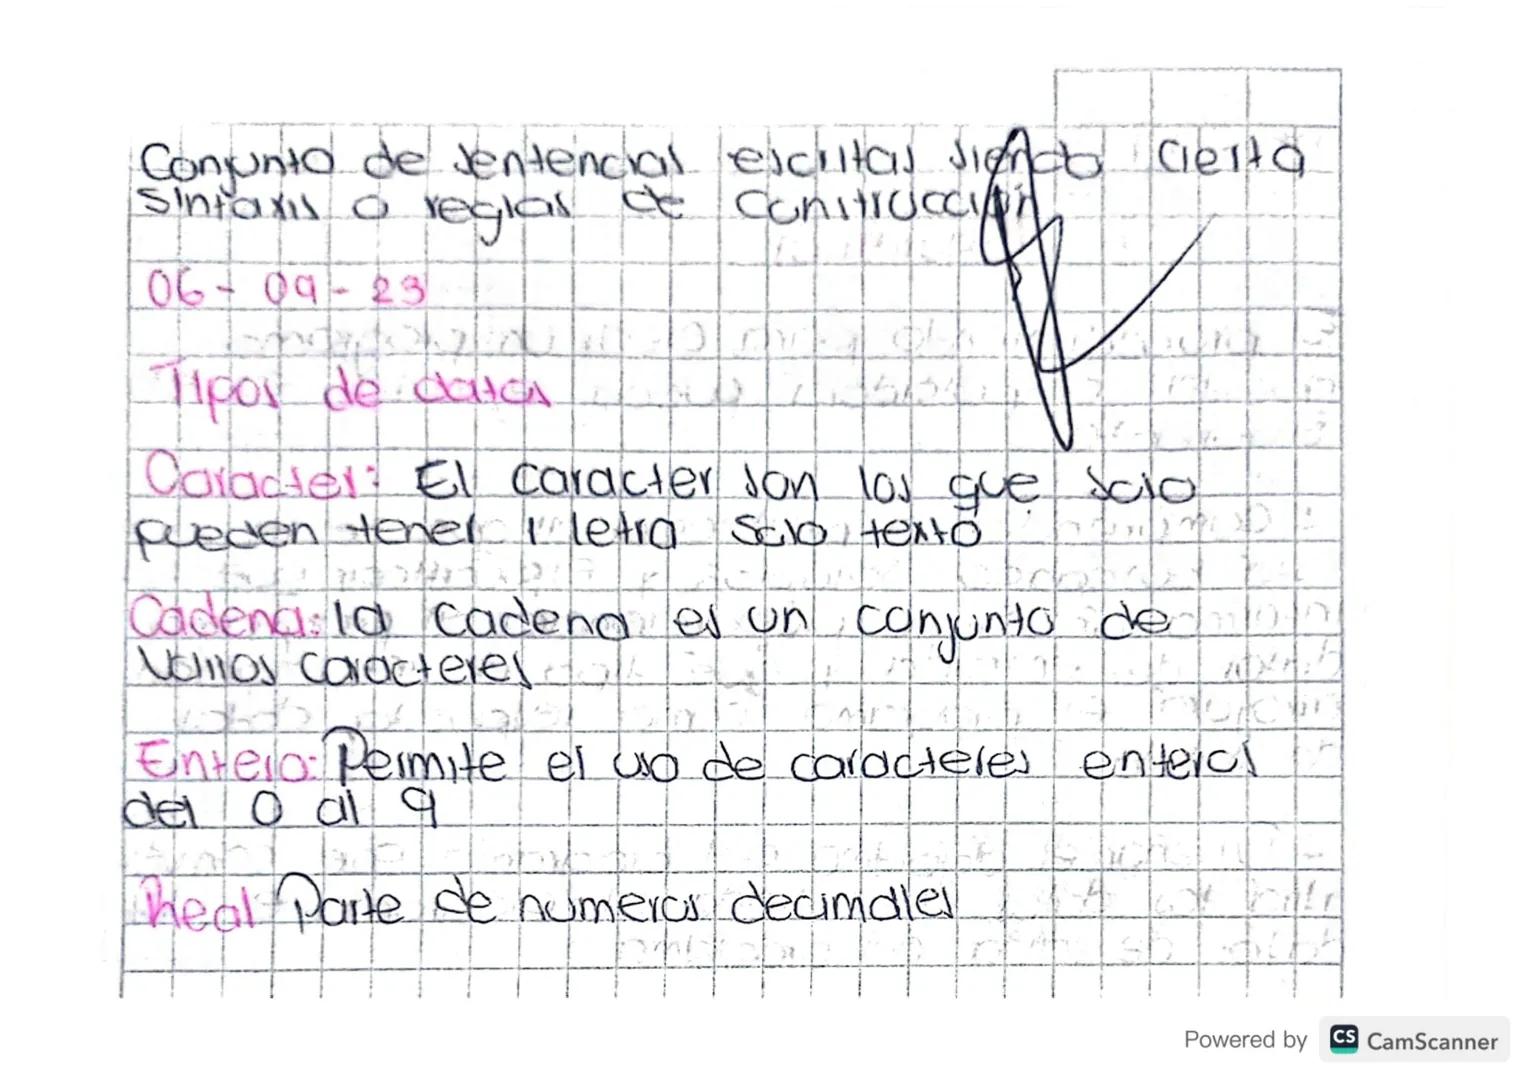 Conjunto de sentencias escritas siendo cierta
sintaxis o reglas de construcción
06 - 09 - 23
Tipos de datos
Caracter: El caracter son los que solo
pueden tener 1 letra solo texto
Cadena: la cadena es un conjunto de
varios caracteres
Entero: Permite el uso de caracteres enteros
del 0 al 9
Real Parte de numeros decimales
Powered by CS CamScanner